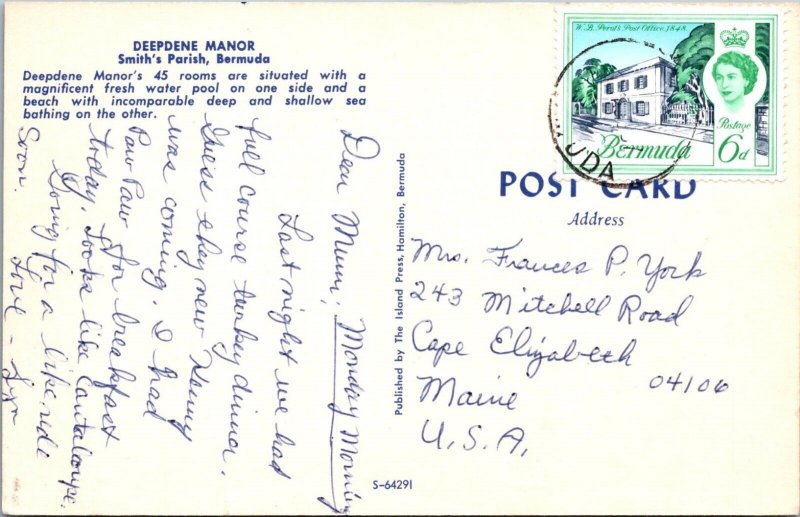 DEEPDENE MANOR
Smith's Parish, Bermuda
Deepdene Manor's 45 rooms are situated with a
magnificent fresh water pool on one side and a
beach with incomparable deep and shallow sea
bathing on the other.
Monday Morning
Dear Mum,
Last night we had
full course turkey dinner.
Guess they new Henny
was coming. I had
Paw Paw for breakfast
today. Looks like Cantaloupe.
Going for a bike ride
soon
Love -
Published by The Island Press, Hamilton, Bermuda
S-64291
W. B. Perot's Post Office, 1848.
Postage
Bermuda 6d
UDA
POST CARD
Address
Mrs. Frances P. York
243 Mitchell Road
Cape Elizabeth
Maine 04106
U.S.A.